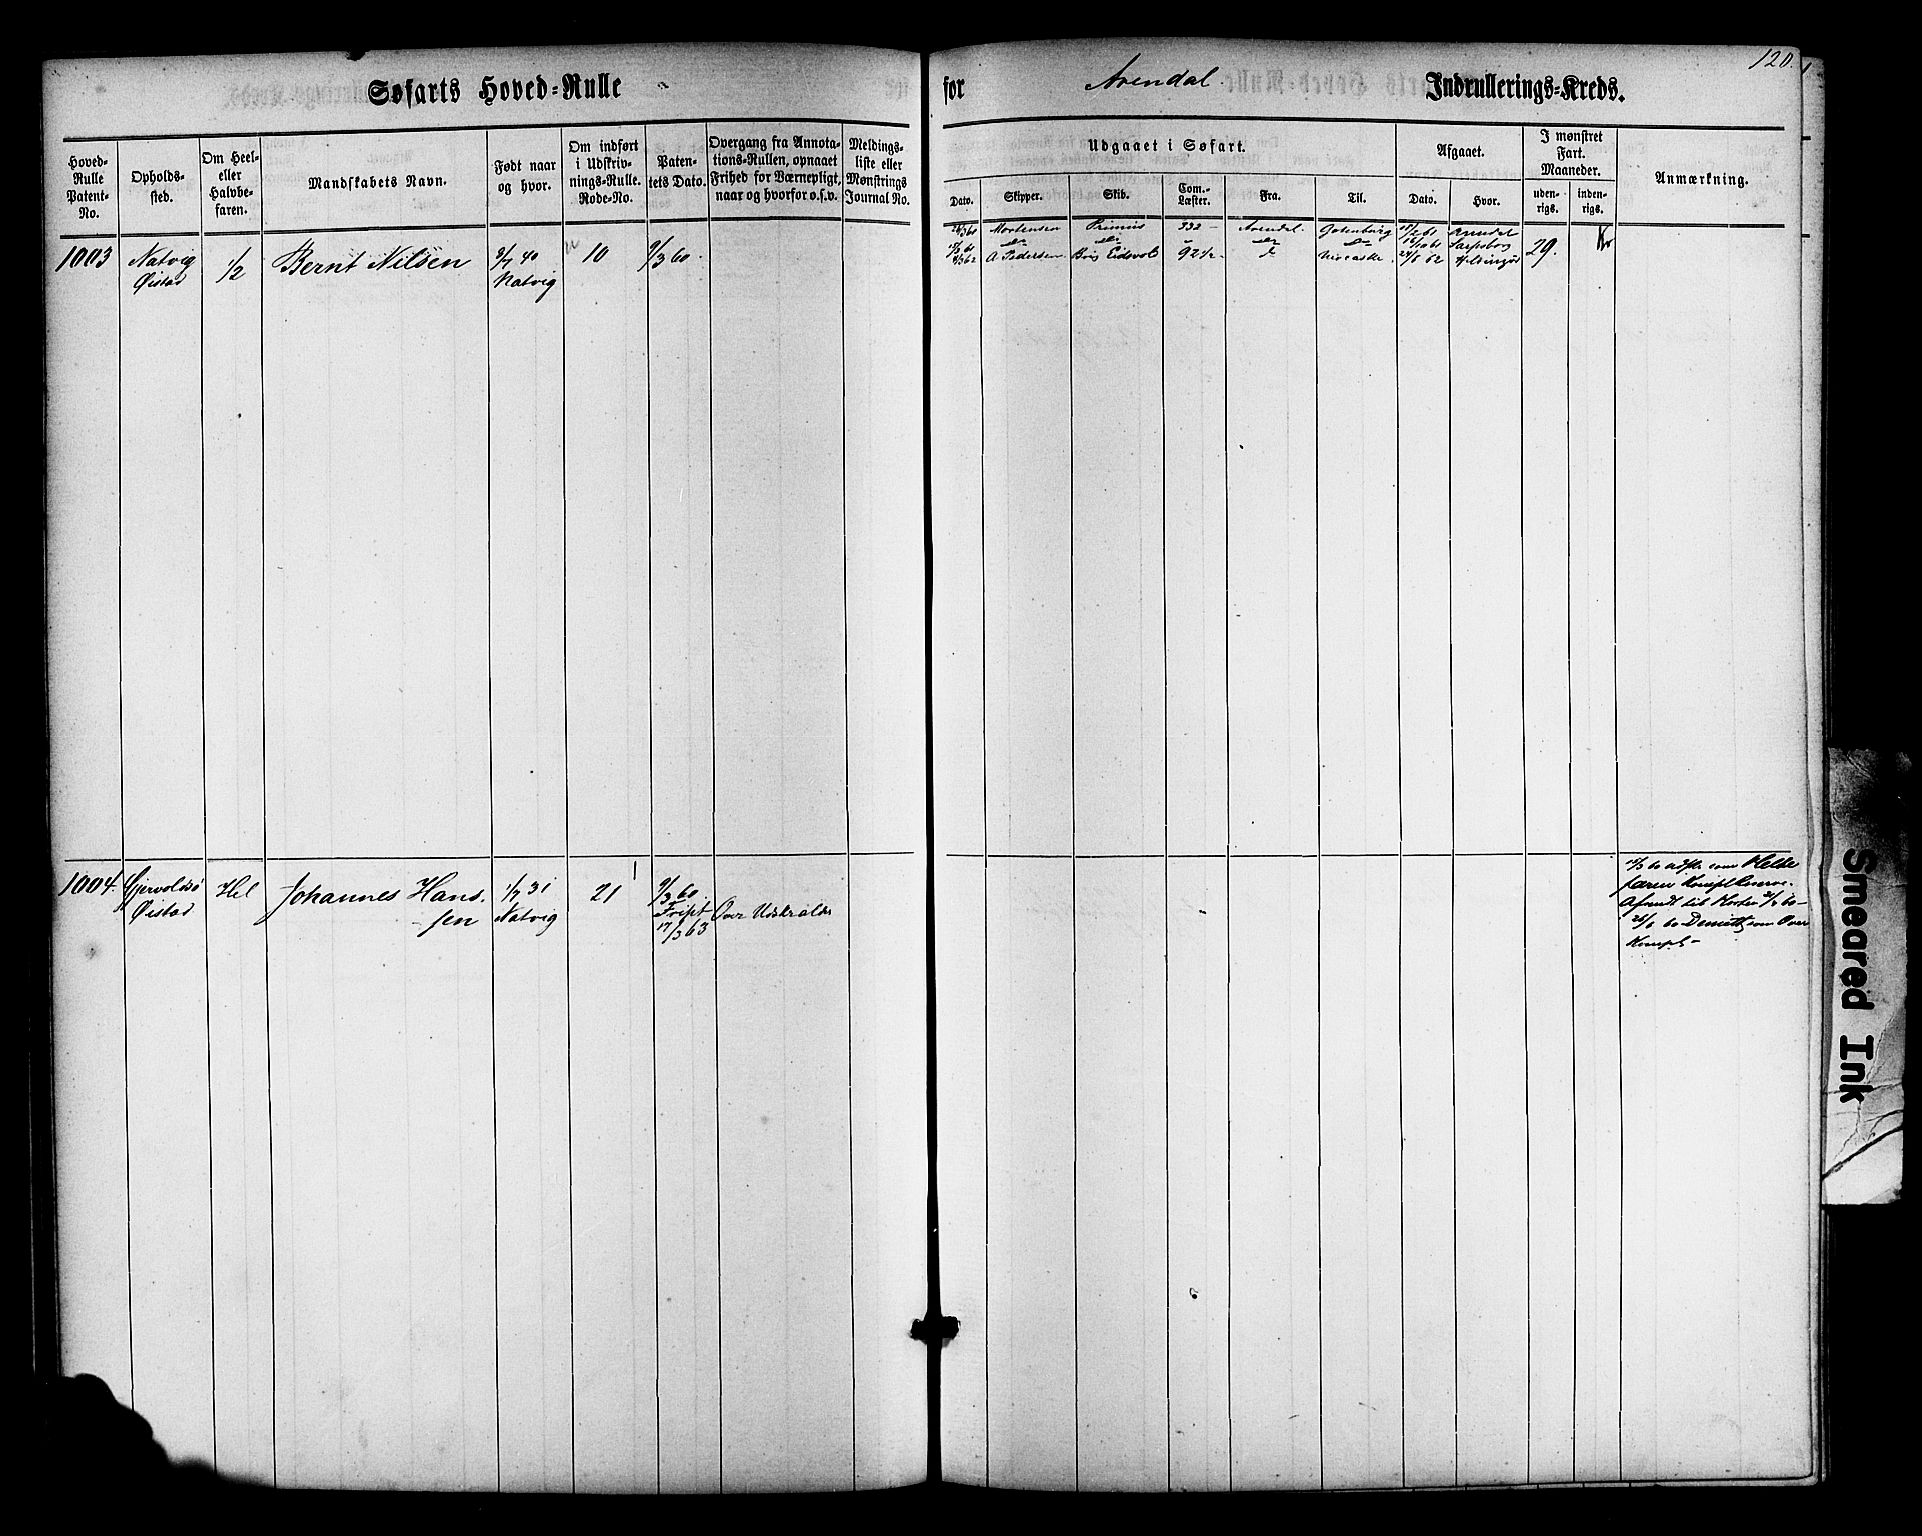 120.
Søfarts Hoved-Rulle for Arendal Indrullerings-Kreds.
Hoved-Rulle Patent-No.
Opholds-sted.
Om Heel- eller Halvbe-faren.
Mandskabets Navn.
Født naar og hvor.
Om indført i Udskriv-nings-Rulle. Rode-No.
Paten-tets Dato.
Overgang fra Annota-tions-Rullen, opnaaet Frihed for Værnepligt, naar og hvorfor o.s.v.
Meldings-liste eller Mønstrings Journal No.
Udgaaet i Søfart.
Dato. Skipper. Skib. Com.-Læster. Fra. Til.
Afgaaet.
Dato. Hvor.
I mønstret Fart. Maaneder.
uden-rigs. inden-rigs.
Anmærkning.
1003 Natvig Øistad 1/2 Bernt Nilsen 9/7 40 Natvig 10 9/3 60.
Mortensen Primus 232 - Arendal Gotenborg 17/2 61 Arendal
do do - do do Sarpsborg
A Pedersen Brig Eidsvol 92 1/2 - 24/8 62 Helsingør 29.
1004. Gjervoldsø Øistad Hel Johannes Hans-
sen 1/7 31 Natvig 21 9/3 60. Frip 17/3 63 Over Udskralder
60 som Hele
faren Kompl Reserve.
Afsendt til Horten 60 -
60 som Over
Kompl -
Smeared Ink